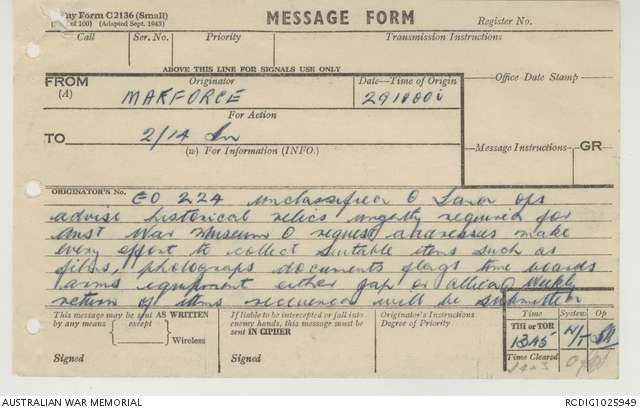 Army Form C2136 (Small)
of 100) (Adapted Sept. 1943)
MESSAGE FORM
Register No.
Call
Ser. No.
Priority
Transmission Instructions
ABOVE THIS LINE FOR SIGNALS USE ONLY
FROM
(A)
Originator
MARFORCE
Date—Time of Origin
291800
Office Date Stamp
For Action
TO
2/14
(W) For Information (INFO.)
Message Instructions
GR
ORIGINATOR'S No.
GO 224 unclassified O ops
advise historical relics urgently required for
Aust War Museum O request addresses make
every effort to collect suitable items such as
films, photographs documents flags time boards
arms equipment either jap or allied Weekly
return of items will be submitted
This message may be sent AS WRITTEN
by any means
except
Wireless
Signed
If liable to be intercepted or fall into
enemy hands, this message must be
sent IN CIPHER
Signed
Originator's Instructions
Degree of Priority
Time
System
Op
THI or TOR
1845
W/T
Time Cleared
AUSTRALIAN WAR MEMORIAL
RCDIG1025949